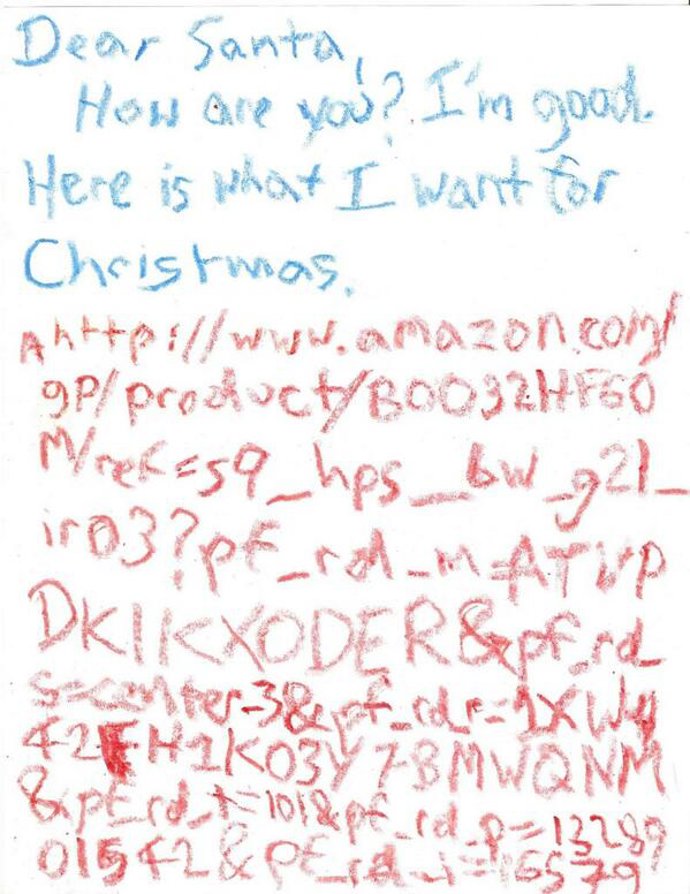 Dear Santa,
How are you? I'm good.
Here is what I want for
Christmas.
http://www.amazon.com/
gp/product/B0092HF60
M/ref=s9_hps_bw_g21_
ir03?pf_rd_m=ATVP
DKIKX0DER&pf_rd_
s=center-3&pf_rd_r=1XW44
42FH1K03Y7BMWQNM
&pf_rd_t=101&pf_rd_p=13289
01542&pf_rd_i=16579